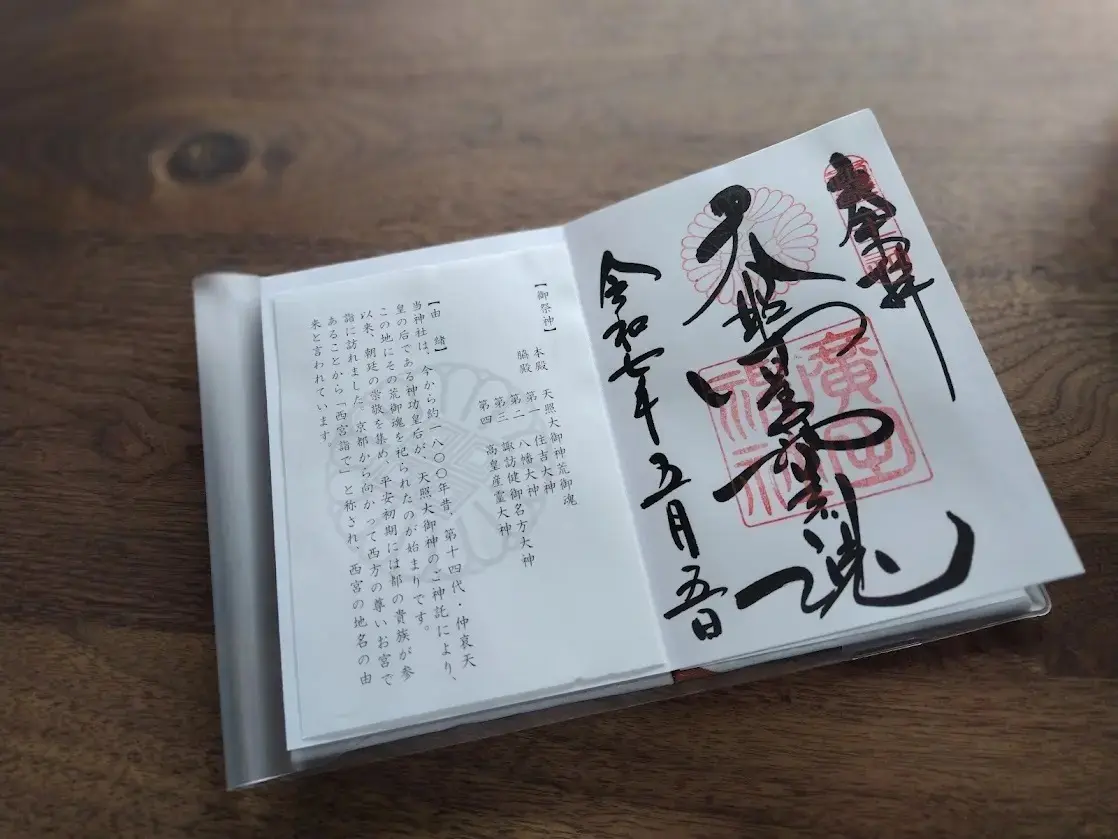 奉拝
天照大御神荒御魂
廣田
神社
令和七年五月五日
【御祭神】
本殿 天照大御神荒御魂
脇殿 第一 住吉大神
第二 八幡大神
第三 諏訪健御名方大神
第四 高皇産霊大神
【由 緒】
当神社は、今から約一八〇〇年昔、第十四代・仲哀天
皇の后である神功皇后が、天照大御神のご神託により、
この地にその荒御魂を祀られたのが始まりです。
以来、朝廷の崇敬を集め、平安初期には都の貴族が参
詣に訪れました。京都から向かって西方の尊いお宮で
あることから「西宮詣で」と称され、西宮の地名の由
来と言われています。